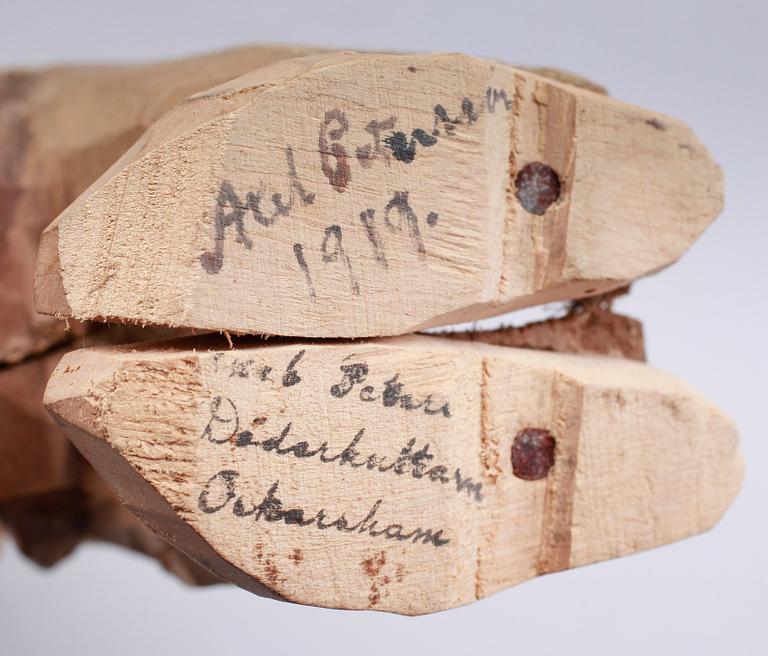 Axel Peterson
1919.
Axel Peters
Döderhultarn
Oskarshamn